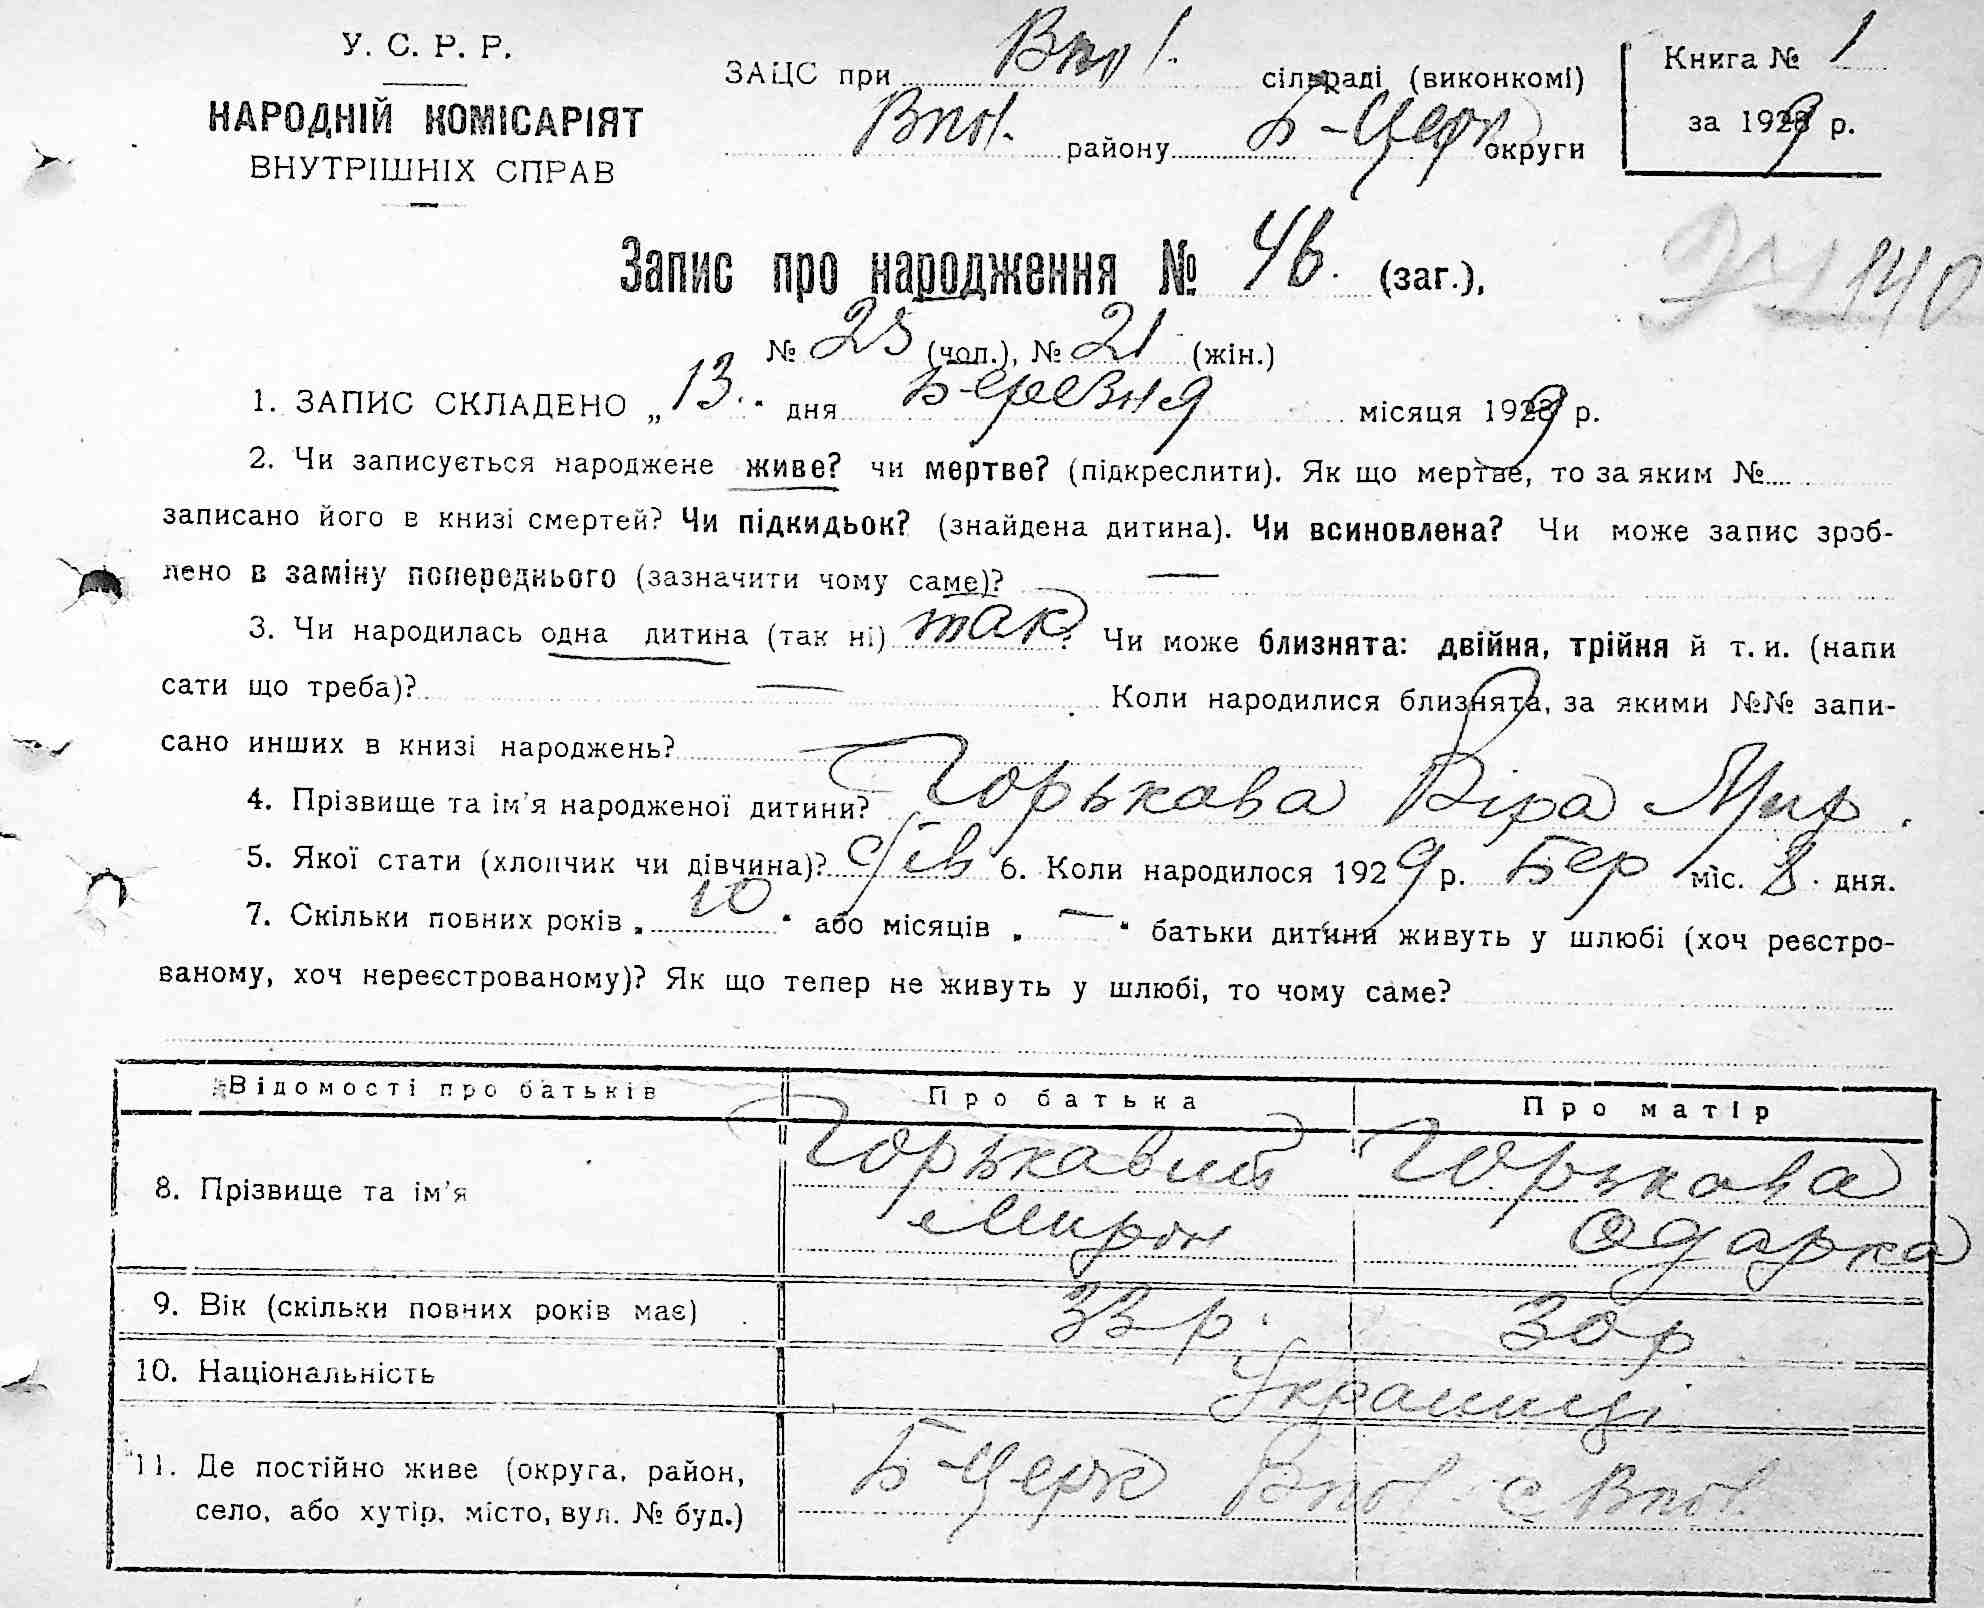 У. С. Р. Р.
НАРОДНІЙ КОМІСАРІЯТ
ВНУТРІШНІХ СПРАВ
ЗАЦС при Впол. сільраді (виконкомі)
Впол. району Б-Церк округи
Книга № 1
за 1929 р.
Запис про народження № 46. (заг.),
140
№ 25 (чол.), № 21 (жін.)
1. ЗАПИС СКЛАДЕНО „13." дня Березня місяця 1929 р.
2. Чи записується народжене живе? чи мертве? (підкреслити). Як що мертве, то за яким №
записано його в книзі смертей? Чи підкидьок? (знайдена дитина). Чи всиновлена? Чи може запис зроб-
лено в заміну попереднього (зазначити чому саме)? —
3. Чи народилась одна дитина (так ні) так? Чи може близнята: двійня, трійня й т. и. (напи
сати що треба)? — Коли народилися близнята, за якими №№ запи-
сано инших в книзі народжень?
4. Прізвище та ім'я народженої дитини? Горькава Віра Мир.
5. Якої стати (хлопчик чи дівчина)? дів 6. Коли народилося 1929 р. Бер міс. 8. дня.
7. Скільки повних років „10" або місяців „—" батьки дитини живуть у шлюбі (хоч реєстро-
ваному, хоч нереєстрованому)? Як що тепер не живуть у шлюбі, то чому саме?
Відомості про батьків Про батька Про матір
8. Прізвище та ім'я Горькавий Горькова
Мирон Одарка
9. Вік (скільки повних років має) 33 р. 30 р
10. Національність Украинці
11. Де постійно живе (округа, район, Б-Церк Впол. с Впол.
село, або хутір, місто, вул. № буд.)